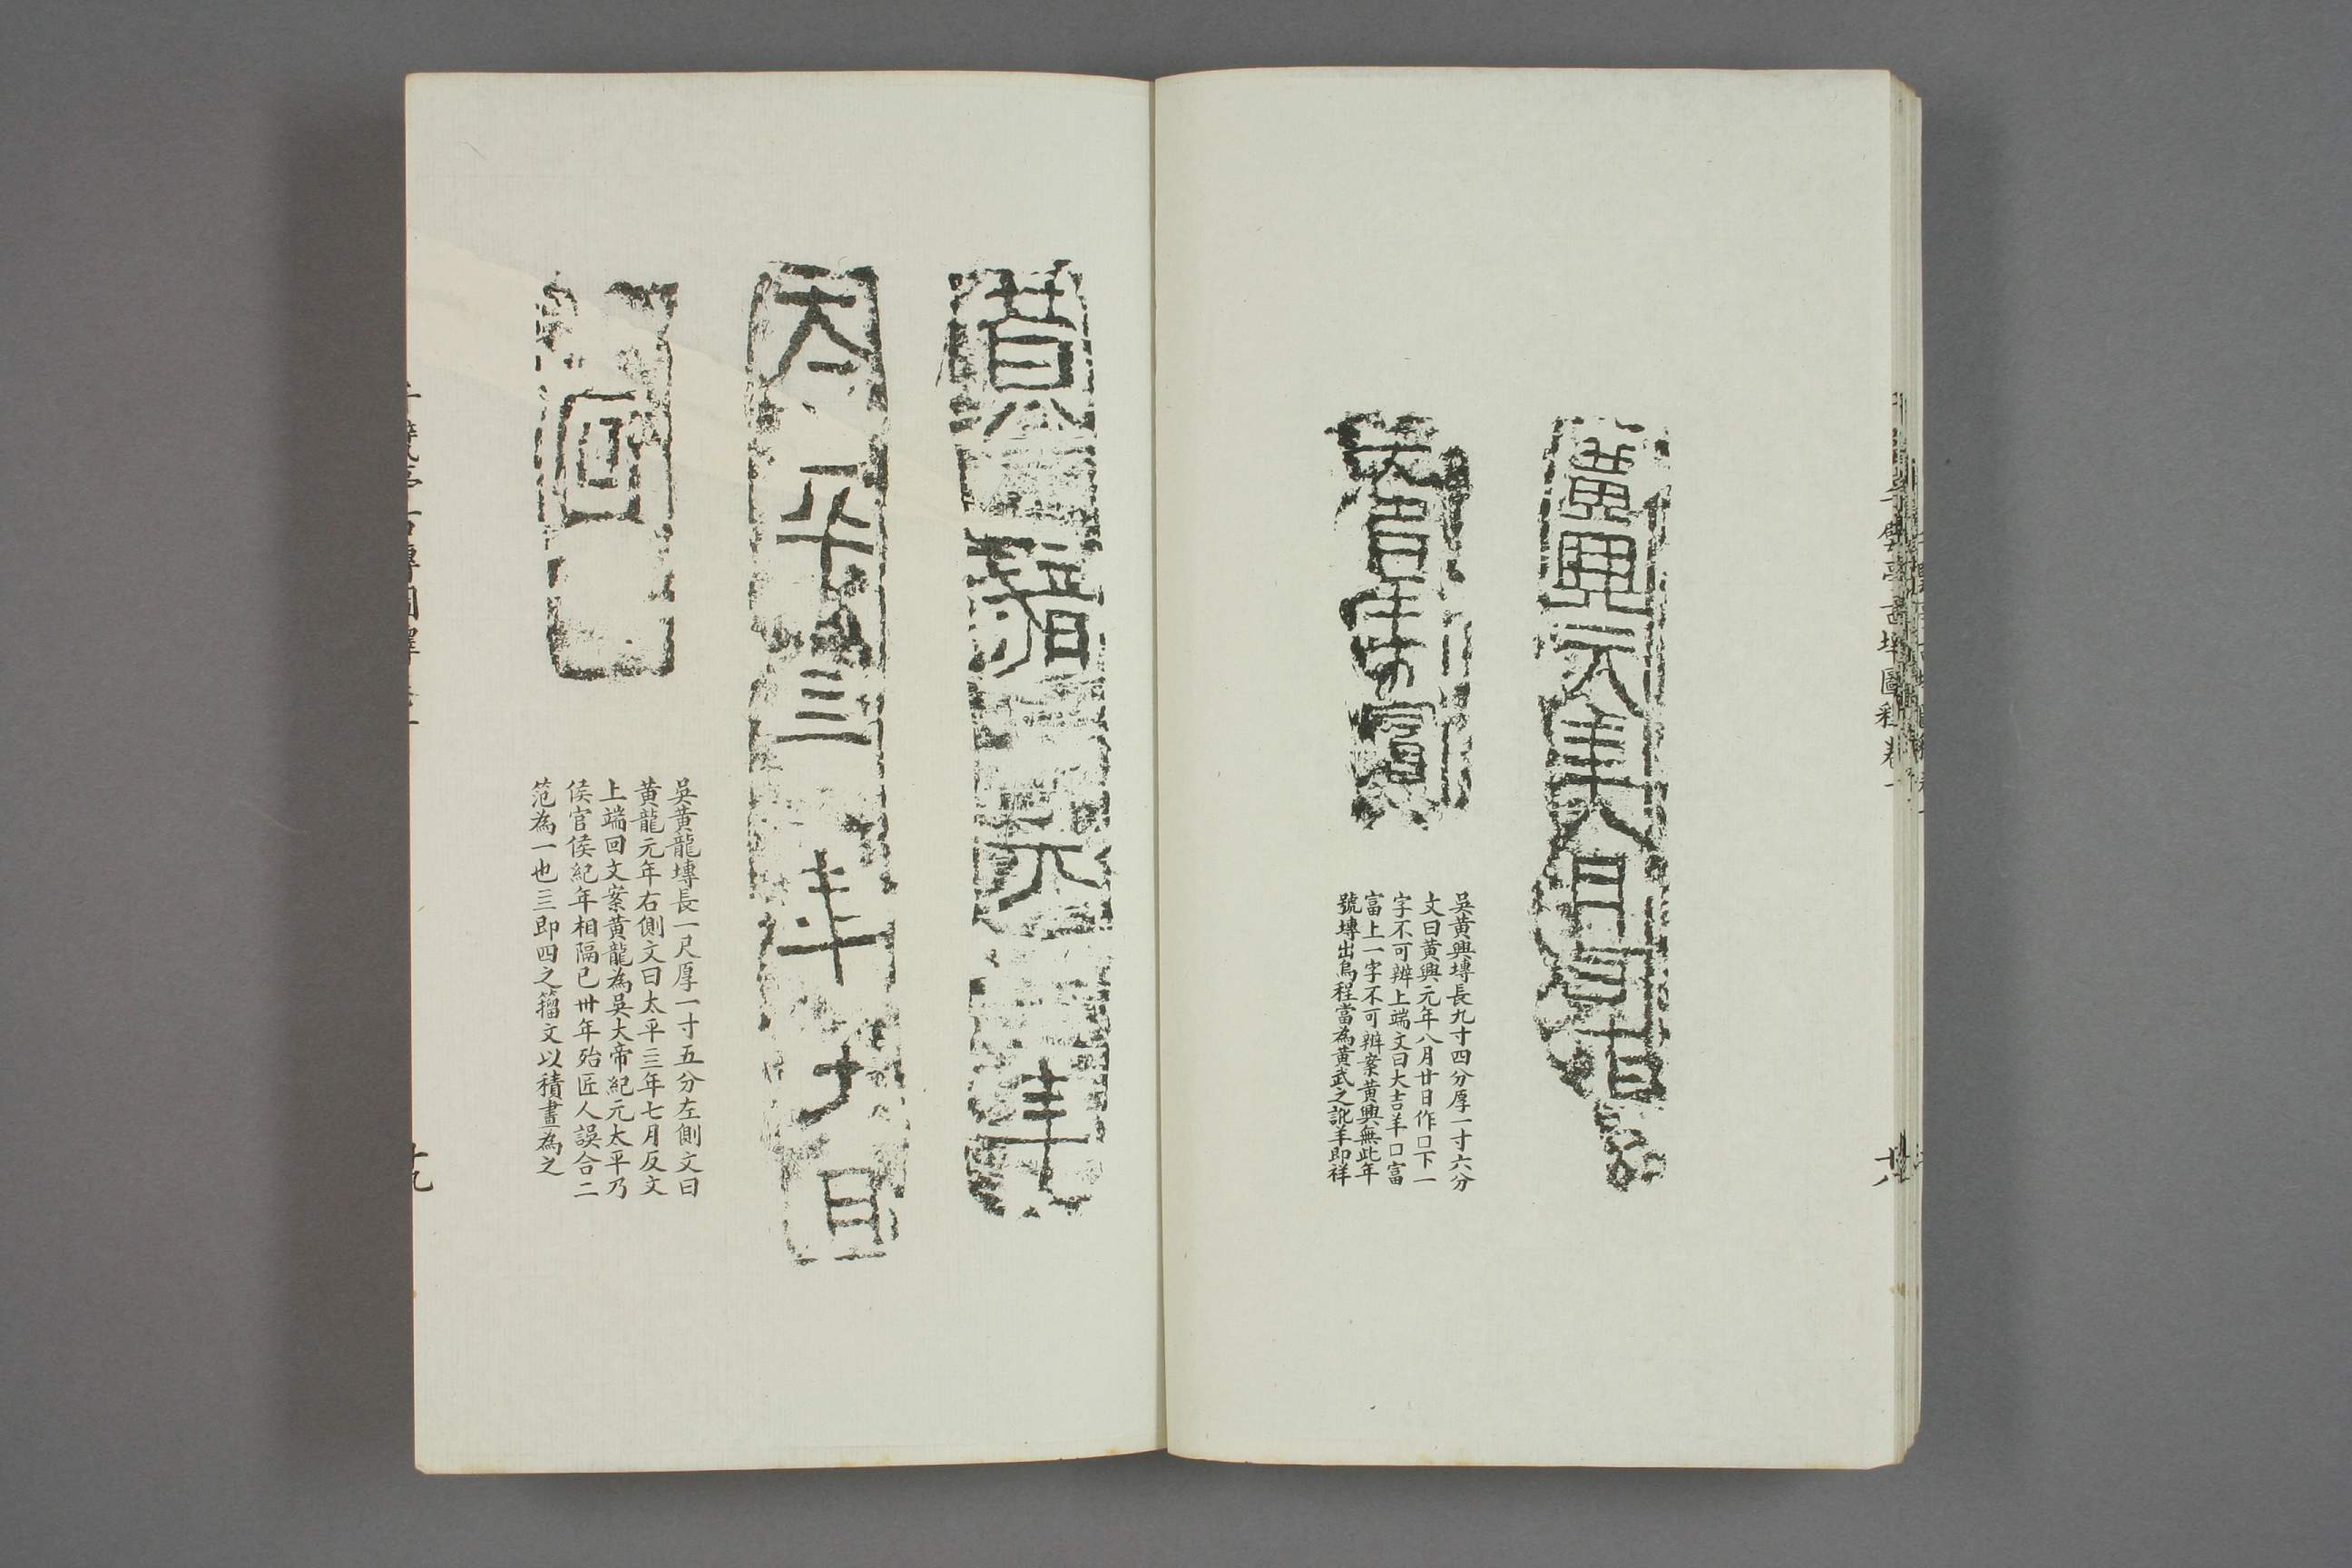 黃興元年八月廿日作
大吉羊
富
吳黃興塼長九寸四分厚一寸六分
文曰黃興元年八月廿日作口下一
字不可辨上端文曰大吉羊口富
富上一字不可辨案黃興無此年
號塼出烏程當為黃武之訛羊即祥
廿八
黃龍元年
太平三年七月
回
吳黃龍塼長一尺厚一寸五分左側文曰
黃龍元年右側文曰太平三年七月反文
上端回文案黃龍為吳大帝紀元太平乃
侯官侯紀年相隔已卅年殆匠人誤合二
范為一也三即四之籀文以積畫為之